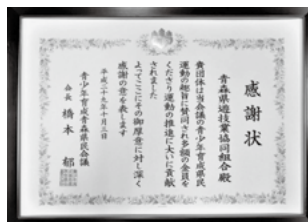 感謝状
青森県遊技業協同組合殿
貴団体は当会議の青少年育成県民
運動の趣旨に賛同され多額の金員を
くださり運動の推進に大いに貢献
されました
よってここにその御厚意に対し深く
感謝の意を表します
平成二十九年十月三日
青少年育成青森県民会議
会長 橋本 都